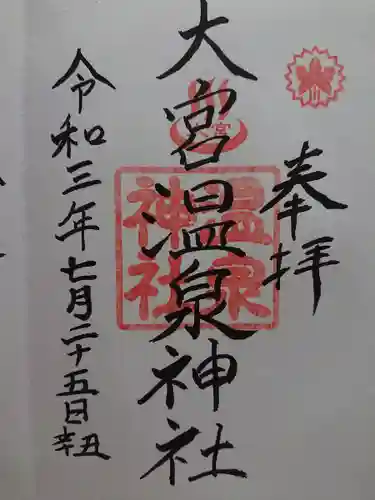 奉拝
大宮温泉神社
温泉
神社
令和三年七月二十五日辛丑